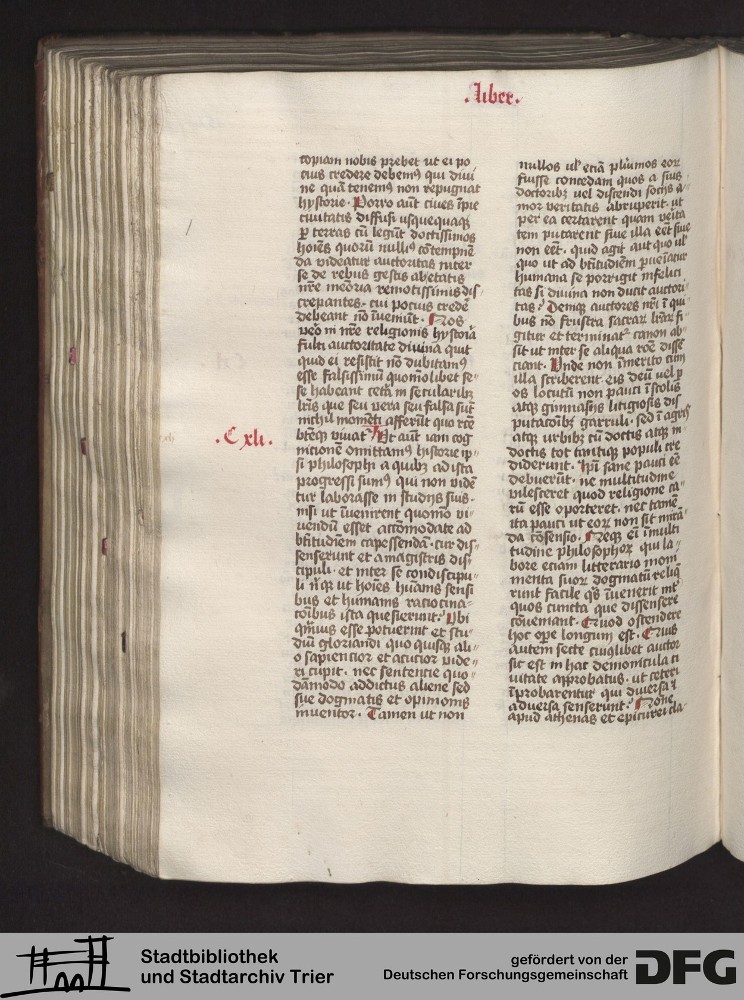 .Liber.
copiam nobis prebet ut ei po
cius credere debem9 qui divi
ne quā tenem9 non repugnat
hystorie. Porro aūt cives īpie
civitatis diffusi usquequaqȝ
p terras cū legūt doctissimos
hoīes quorū nulli9 cōtempnē
da videatur auctoritas inter
se de rebus gestis ab etatis
nr̄e meōria remotissimis dis
crepantes. cui pocius credē
debeant nō īveniūt. Nos
vero in nr̄e religionis hystoīa
fulti auctoritate divina quit
quid ei resistit nō dubitam9
esse falsissimū quomōlibet se
se habeant cetā in secularibȝ
lr̄is que seu vera seu falsa sūt
nichil momēti afferūt quo rc̄e
btēqȝ vivat Ut aūt iam cog
.Cxli.
nicione omittam9 historie ip
si philosophi a quibȝ ad ista
progressi sum9 qui non vidē
tur laborasse in studiis suis.
nisi ut īvenirent quomō vi
vendū esset accōmodate ad
btītudinē capessendā. cur dis
senserunt et a magistris dis
cipuli. et inter se condiscipu
li nqȝ ut hoīes hūanis sensi
bus et humanis raciocina
coībus ista quesierunt. Ubi
qmvis esse potuerint et stu
diū gloriandi quo quisqȝ ali
o sapiencior et acucior vide
ri cupit. nec sentencie quo
dāmodo addictus aliene sed
sue dogmatis et opinionis
inventor. Tamen ut non
nullos ul' eciā plurimos eor
fuisse concedam quos a suis
doctoribȝ vel discendi sociis a
mor veritatis abruperit. ut
per ea certarent quam verita
tem putarent sive illa eēt sive
non eēt. quid agit aut quo ul'
quo ut ad btītudiēm pveniatur
humana se porrigit infelici
tas si divina non ducit auctori
tas. Deniqȝ auctores nr̄i ī qui
bus nō frustra sacrar lr̄ar fi
gitur et terminat canon ab
sit ut inter se aliqua rōe disse
ciant. Unde non īmerito cum
illa scriberent eis deū vel p
os locutū non pauci īscolis
atqȝ gimnasiis litigiosis dis
putacōibȝ garruli. sed ī agris
atqȝ urbibȝ cū doctis atqȝ in
doctis tot tantiqȝ populi cre
diderunt. Ipī sane pauci eē
debuerūt. ne multitudine
vilesceret quod religione ca
rū esse oporteret. nec tamē
ita pauci ut eor non sit mirā
da cōsensio. Neqȝ eī īmulti
tudine philosophor qui la
bore eciam litterario mom
menta suor dogmatū reliq
runt facile qs īvenerit int
quos cuncta que dissensere
cōveniant. Quod ostendere
hoc ope longum est. Quis
autem secte cuiqlibet auctor
sit est in hac demonicula ci
vitate approbatus. ut ceteri
īprobarentur qui diversa et
adversa senserunt. Nōne
apud athenas et epicurei cla
Stadtbibliothek
und Stadtarchiv Trier
gefördert von der
Deutschen Forschungsgemeinschaft
DFG